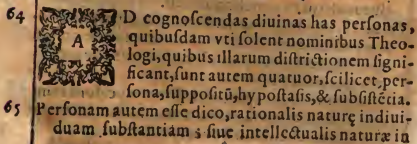 64 AD cognoſcendas diuinas has perſonas,
quibuſdam vti ſolent nominibus Theo-
logi, quibus illarum diſtrictionem ſigni-
ficant, ſunt autem quatuor, ſcilicet, per-
ſona, ſuppoſitũ, hypoſtaſis, & ſubſiſtẽtia.
65 Perſonam autem eſſe dico, rationalis naturę indiui-
duam ſubſtantiam ; ſiue intellectualis naturæ in